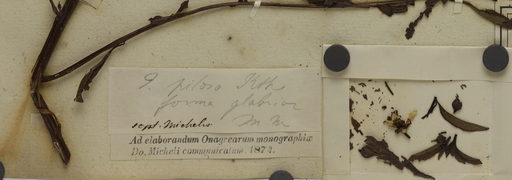 J. pilosa Kth
forma glabrior
M. M
sept. Michelis
Ad elaborandum Onagrearum monographiæ
Do. Micheli communicatum. 1872.